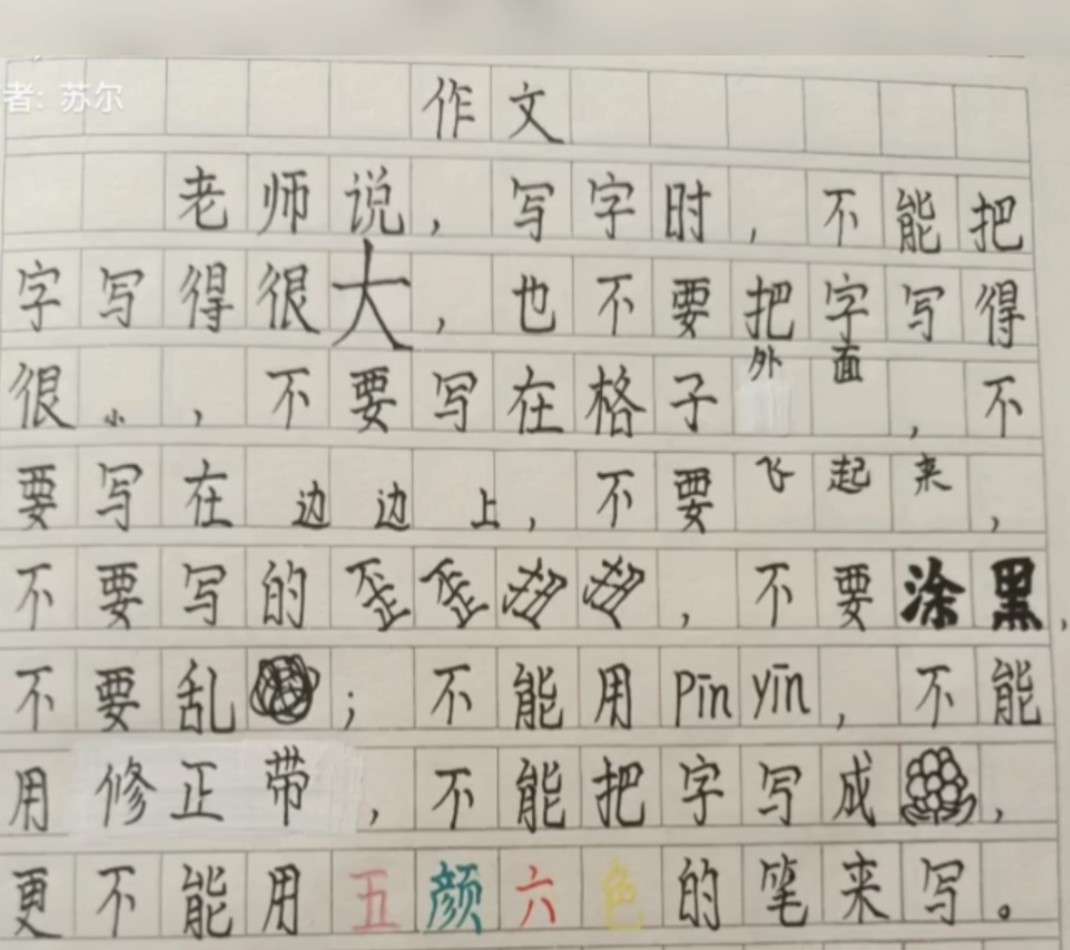 者：苏尔
作文
老师说，写字时，不能把
字写得很大，也不要把字写得
很小，不要写在格子外面，不
要写在边边上，不要飞起来，
不要写的歪歪扭扭，不要涂黑，
不要乱；不能用pīnyīn，不能
用修正带，不能把字写成，
更不能用五颜六色的笔来写。